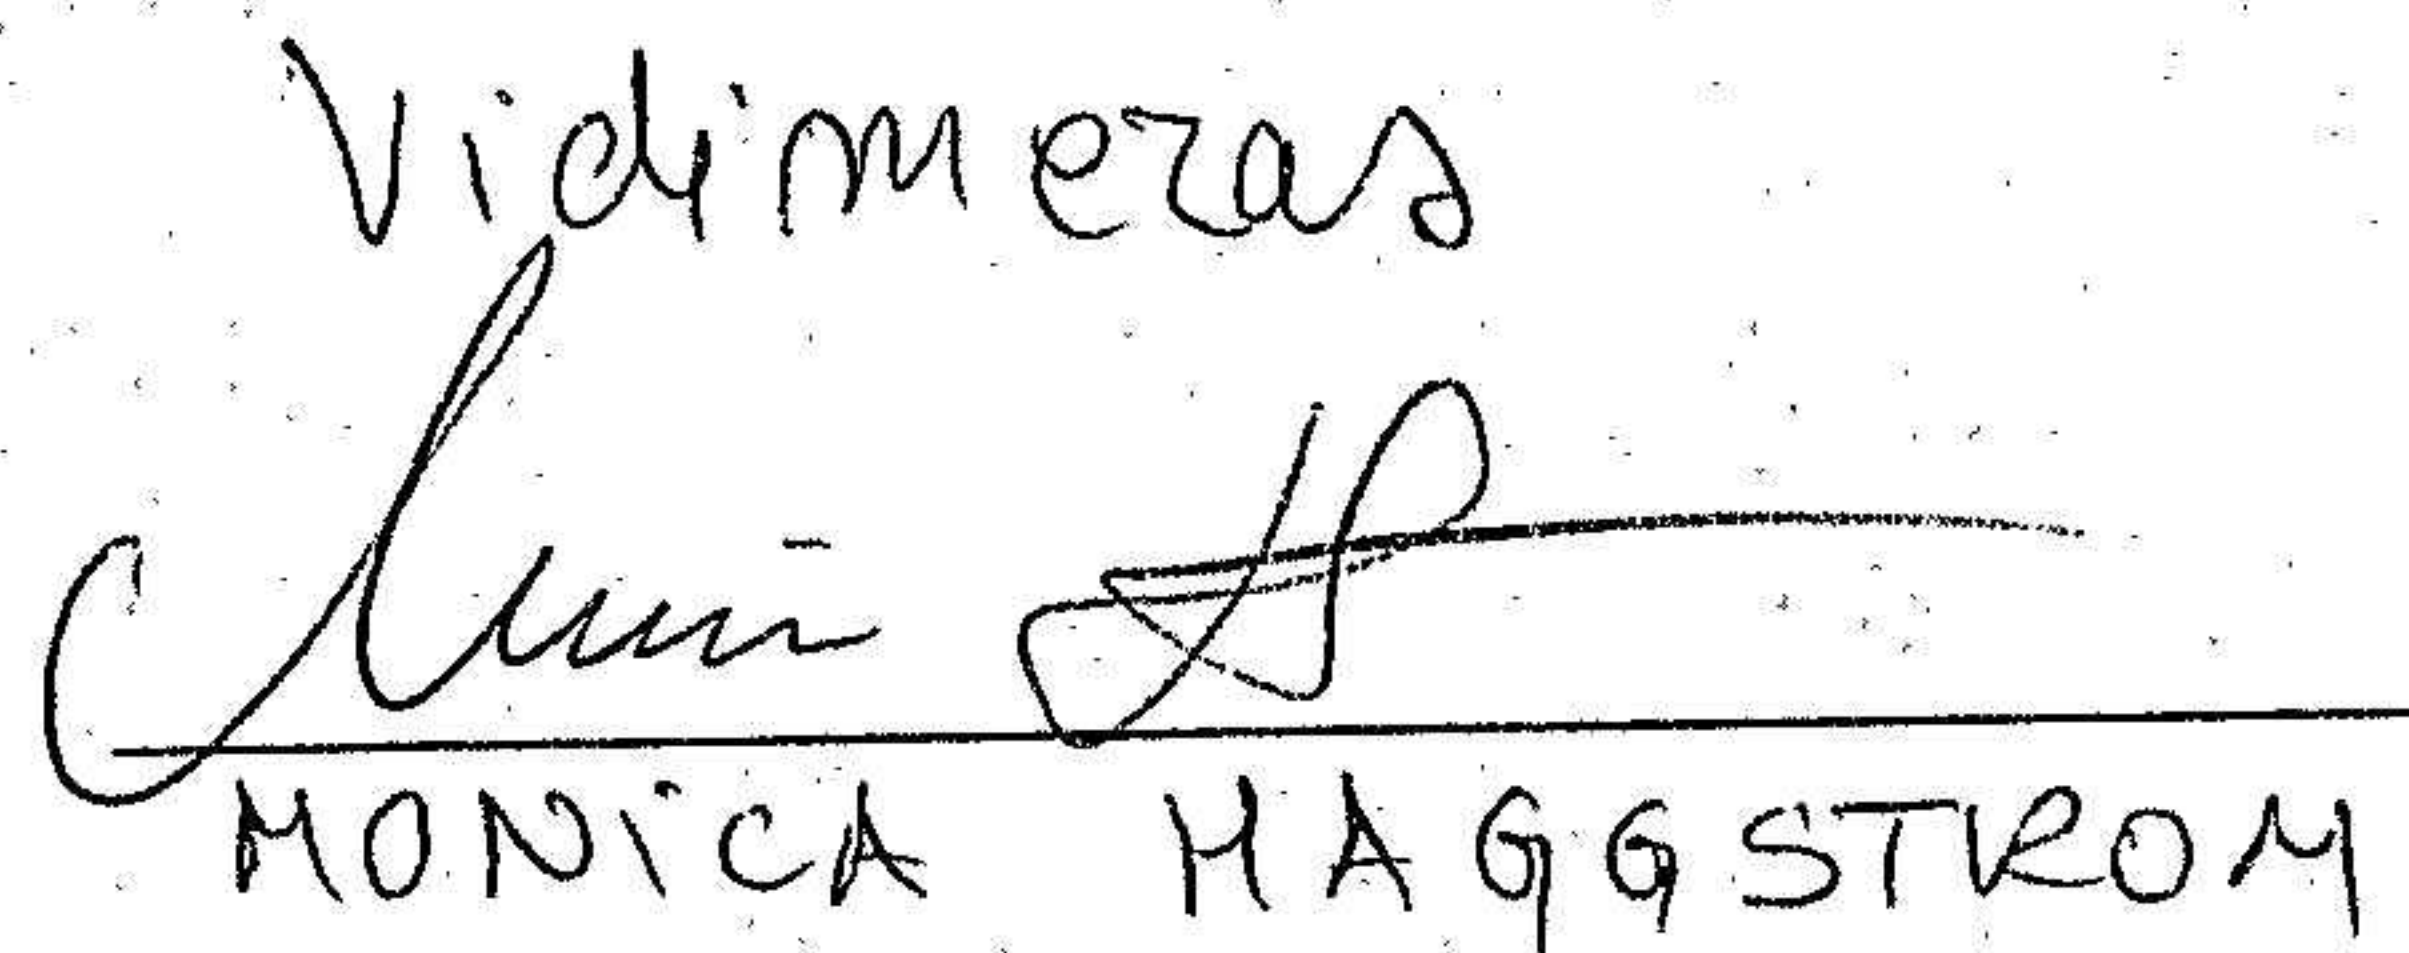 Vidimeras
MONICA HAGGSTROM